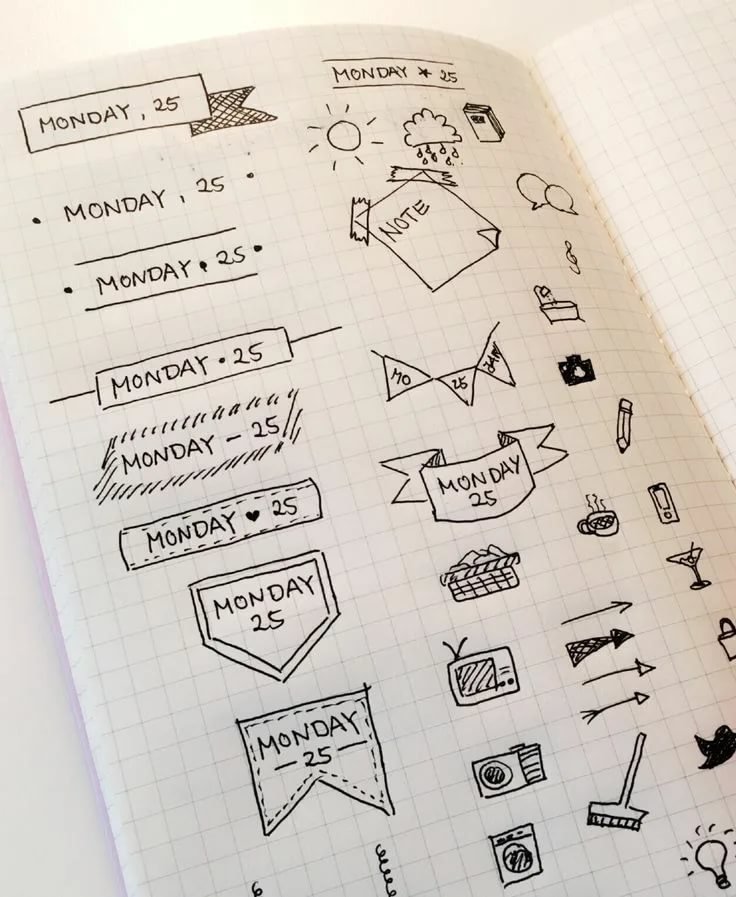 MONDAY, 25
MONDAY, 25
MONDAY • 25
MONDAY • 25
MONDAY – 25
MONDAY ♥ 25
MONDAY
25
MONDAY
– 25 –
MONDAY * 25
NOTE
MO
25
JAN
MONDAY
25